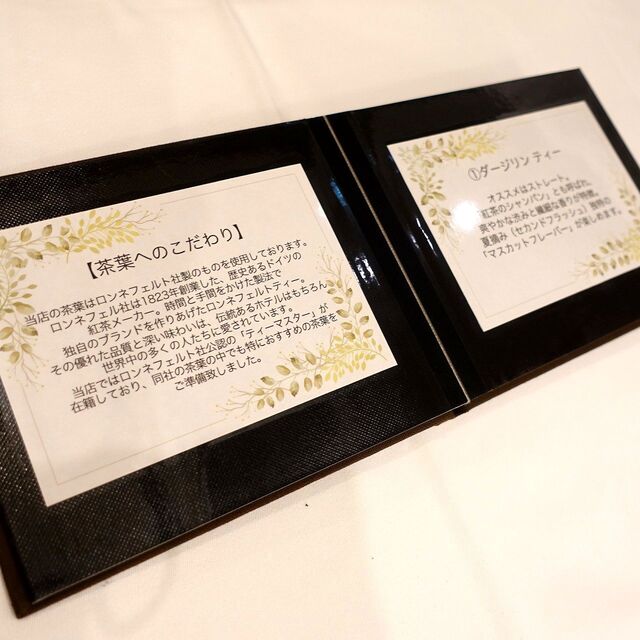 【茶葉へのこだわり】
当店の茶葉はロンネフェルト社製のものを使用しております。
ロンネフェル社は1823年創業した、歴史あるドイツの
紅茶メーカー。時間と手間をかけた製法で
独自のブランドを作りあげたロンネフェルトティー。
その優れた品質と深い味わいは、伝統あるホテルはもちろん
世界中の多くの人たちに愛されています。
当店ではロンネフェルト社公認の「ティーマスター」が
在籍しており、同社の茶葉の中でも特におすすめの茶葉を
ご準備致しました。
①ダージリン ティー
オススメはストレート。
「紅茶のシャンパン」とも呼ばれ、
爽やかな渋みと繊細な香りが特徴。
夏摘み（セカンドフラッシュ）独特の
「マスカットフレーバー」が楽しめます。